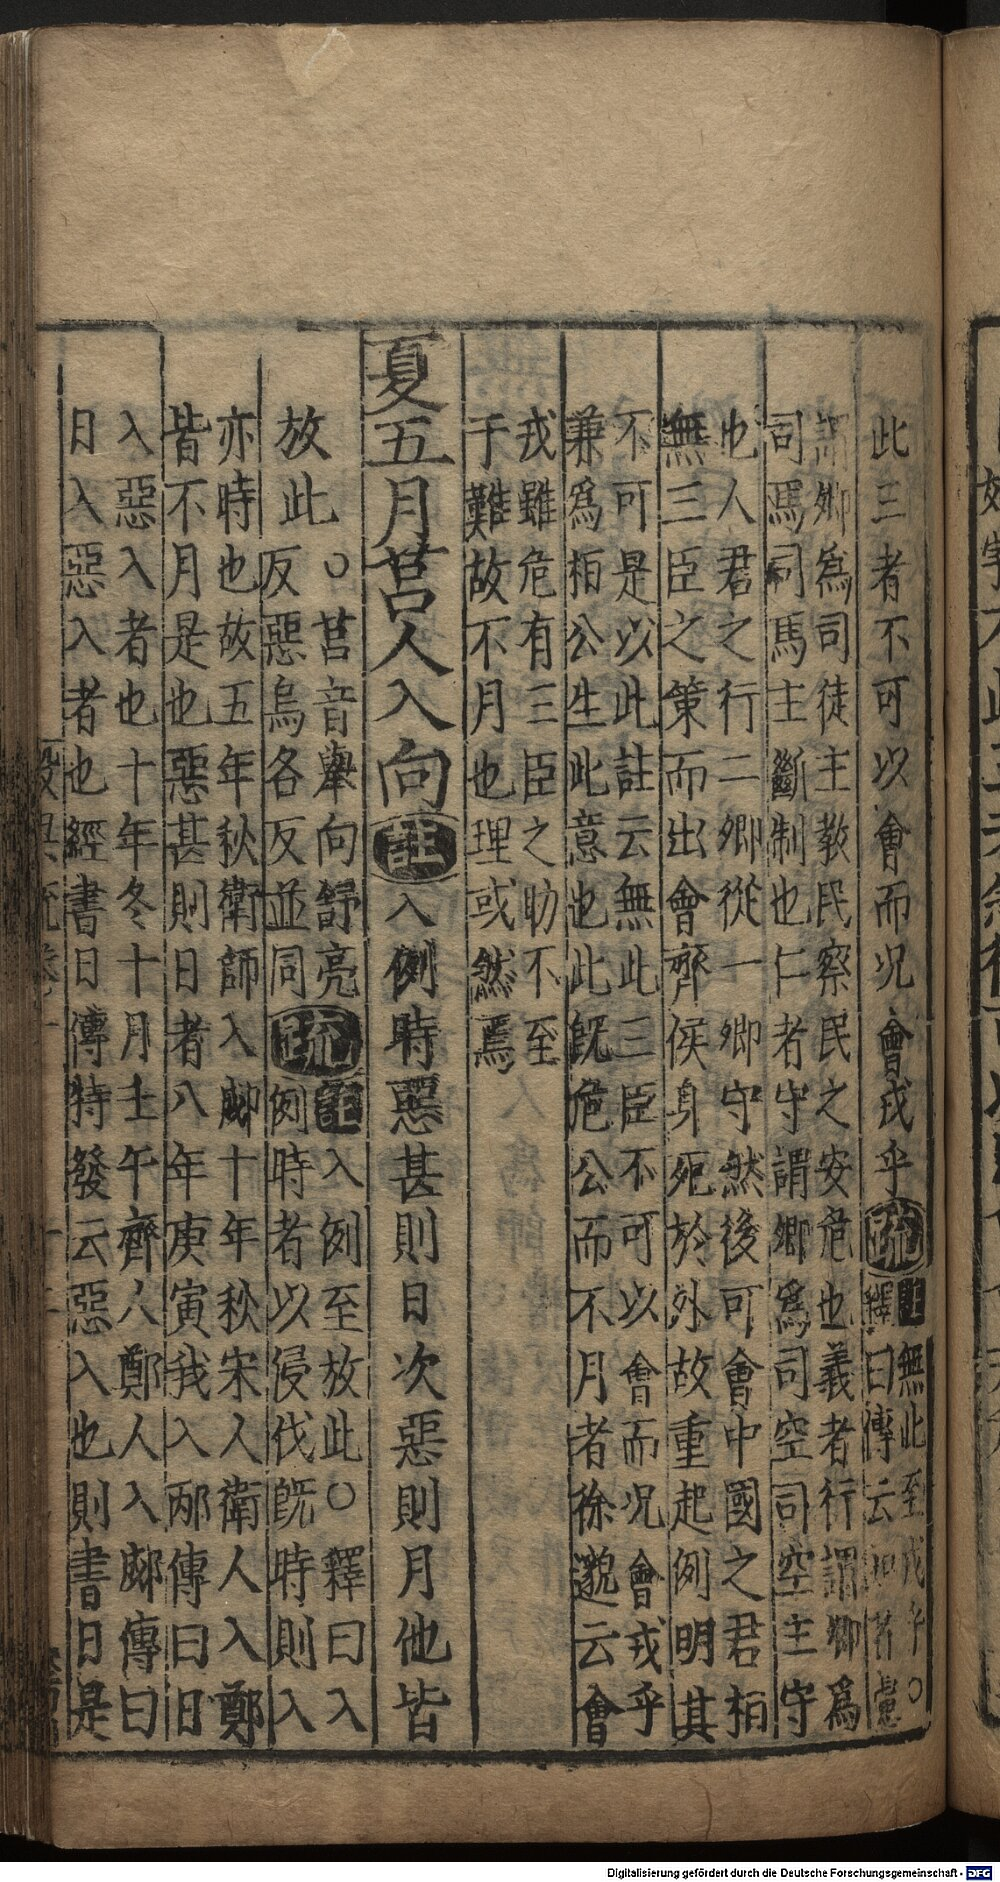 此三者不可以會而況會戎乎疏註無此至戎乎○
釋曰傳云知者慮
謂卿爲司徒主教民察民之安危也義者行謂卿爲
司馬司馬主斷制也仁者守謂卿爲司空司空主守
也人君之行二卿從一卿守然後可會中國之君桓
無三臣之策而出會齊侯身死於外故重起例明其
不可是以此註云無此三臣不可以會而況會戎乎
兼爲桓公生此意也此既危公而不月者徐邈云會
戎雖危有三臣之助不至
于難故不月也理或然焉
夏五月莒人入向註入例時惡甚則日次惡則月他皆
放此
○莒音舉向舒亮
反惡烏各反並同
疏
註入例至放此○釋曰入
例時者以侵伐既時則入
亦時也故五年秋衛師入郕十年秋宋人衛人入鄭
皆不月是也惡甚則日者八年庚寅我入邴傳曰日
入惡入者也十年冬十月壬午齊人鄭人入郕傳曰
日入惡入者也經書日傳特發云惡入也則書日是
Digitalisierung gefördert durch die Deutsche Forschungsgemeinschaft - DFG